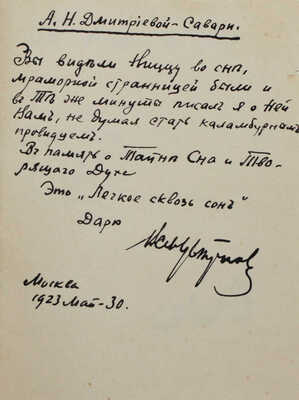 А. Н. Дмитрiевой-Савари.
Вы видѣли Ниццу во снѣ,
мраморной странницей были и
въ Тѣ же минуты писалъ я о Ней
Вамъ, не думая стать каламбурнымъ
провидцемъ.
Въ память о Тайнѣ Сна и Тво-
рящаго Духа
Это „Легкое сквозь сонъ"
Дарю
Москва
1923 Май-30.